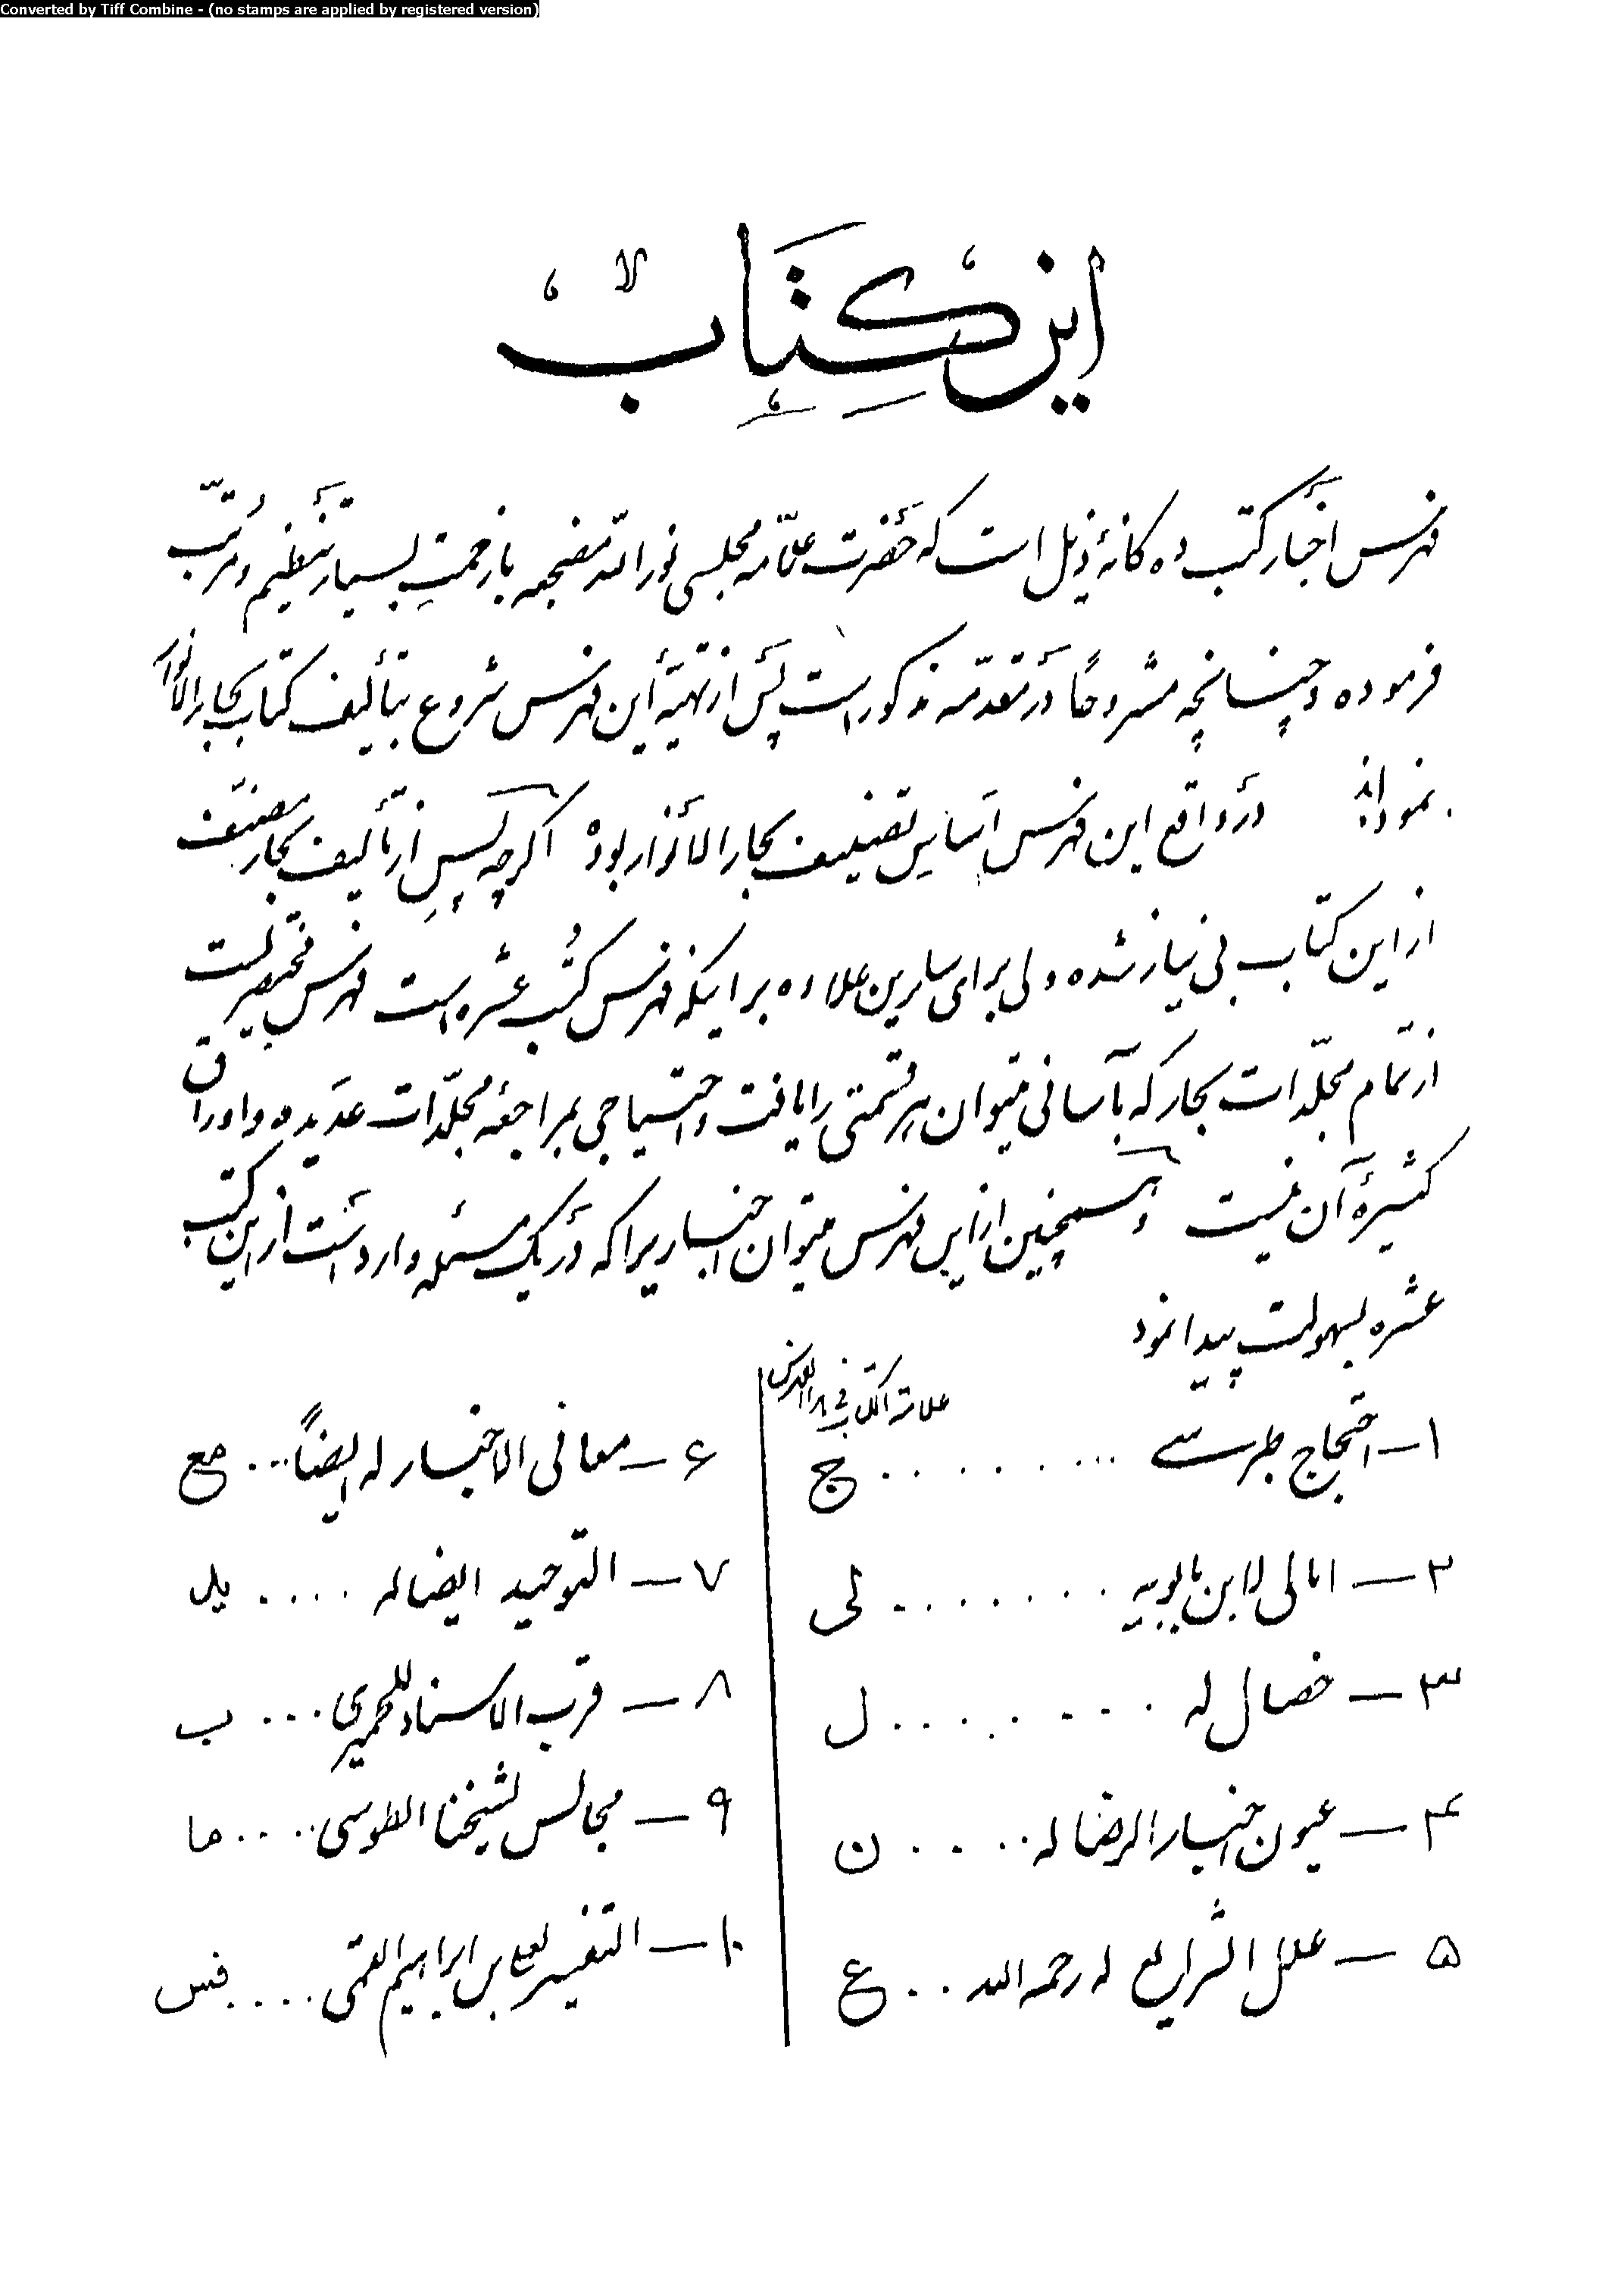 Converted by Tiff Combine - (no stamps are applied by registered version)
این کتاب
فهرس اخبار کتب ده گانهٔ ذیل است که حضرت علّامه مجلسی نور الله مضجعه با زحمت بسیار تنظیم و مرتّب
فرموده و چنانچه مشروحاً در مقدمّه مذکور است پس از تهیّهٔ این فهرس شروع بتألیف کتاب بحار الأنوار
نموده‌اند در واقع این فهرس اساس تصنیف بحار الأنوار بوده اگرچه پس از تألیف بحار مصنّف
از این کتاب بی نیاز شده ولی برای سایرین علاوه بر اینکه فهرس کتب عشره است فهرس مختصریست
از تمام مجلّدات بحار که بآسانی میتوان هر قسمتی را یافت و احتیاجی بمراجعه مجلّدات عدیده و اوراق
کثیرهٔ آن نیست و همچنین از این فهرس میتوان اخباریرا که در یک مسئله وارد است از این کتب
عشره بسهولت پیدا نمود
علامة الکتاب فی هذا الفهرس
۱ – احتجاج طبرسی ........ ج
۲ – امالی لابن بابویه ........ لی
۳ – خصال له ........ ل
۴ – عیون اخبار الرضا له ..... ن
۵ – علل الشرایع له رحمه الله .. ع
۶ – معانی الاخبار له ایضاً ... مع
۷ – التوحید ایضا له .... ید
۸ – قرب الاسناد للحمیری ... ب
۹ – مجالس لشیخنا الطوسی .... ما
۱۰ – التفسیر لعلی بن ابراهیم القمی .... فس